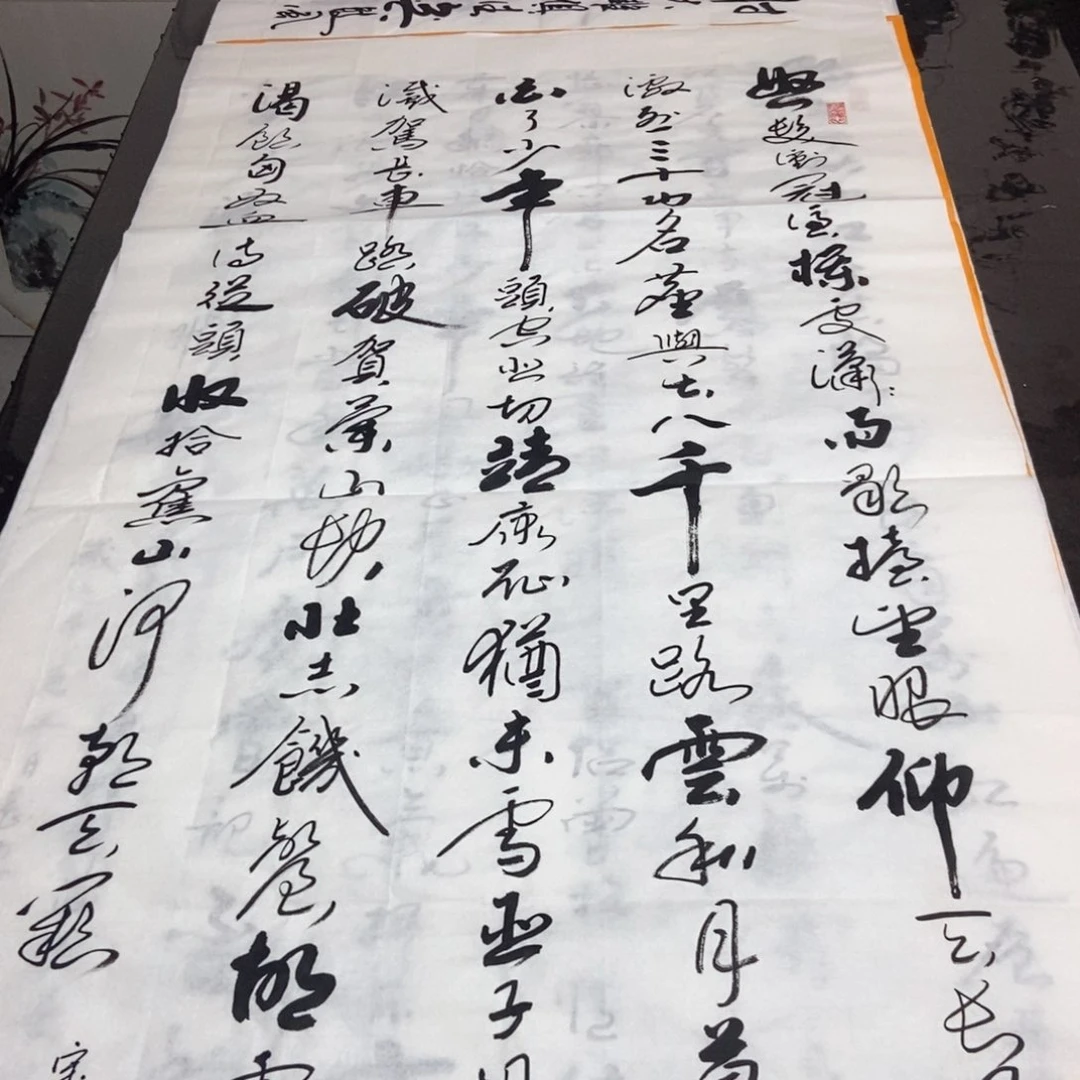 怒髮衝冠憑欄處瀟瀟雨歇擡望眼仰天長
激烈三十功名塵與土八千里路雲和月莫
白了少年頭空悲切靖康恥猶未雪臣子
滅駕長車踏破賀蘭山缺壯志饑餐胡
渴飲匈奴血待從頭收拾舊山河朝天闕
宋